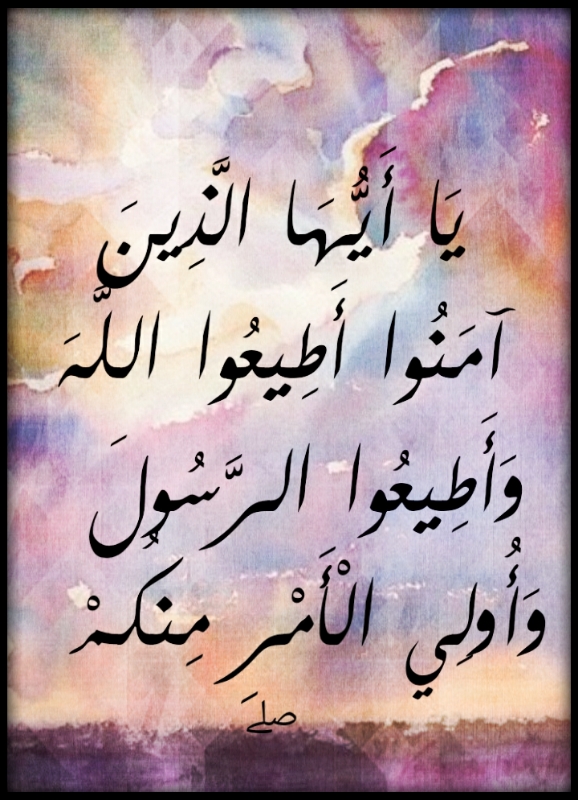 يَا أَيُّهَا الَّذِينَ
آمَنُوا أَطِيعُوا اللَّهَ
وَأَطِيعُوا الرَّسُولَ
وَأُولِي الْأَمْرِ مِنكُمْ
صلے